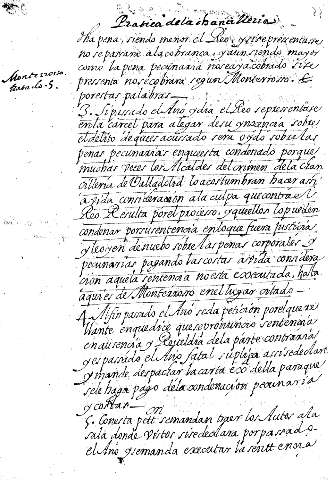 Pratica de la chancilleria
dha pena, siendo menor, el Reo, y si se presentase
no separaria a la cobranca, y aun siendo mayor
como la pena pecuniaria no ea ya cobrado si se
presenta no se cobrara segun Monterroso. &
Monterroso.
tratado. 5.
por estas palabras
3. Si pasado el Año y dia el Reo se presentase
en la carcel para alegar de su ynocencia sobre
el delito de que es acussado sera oydo sobre las
penas pecuniarias en que esta condenado porque
muchas veces los Alcaldes del crimen de la Chan
cilleria de Valladolid lo acostumbran hacer assi
avida consideracion a la culpa que contra el
Reo Resulta por el proceso, y aquellos lo pueden
condenar por su sentencia en lo que fuera justicia
y leoyen de nuebo sobre las penas corporales y
pecuniarias pagando las costas avida considera
cion aquela sentencia no este executada, hasta
aqui es de Monterroso en el lugar citado
4. Assi pasado el Año se da peticion por el que re
mante en que dice que se pronuncio sentencia
en ausencia y Rebeldia de la parte contraria
y es passado el Año fatal suplica assi se declare
y mande despachar la carta exo della para que
se le haga pago de la condenacion pecuniaria
y costas
5. Con esta pett semandan traer los Autos a la
sala donde vistos se declara por passado
el Año y semanda executar la sentt en cia